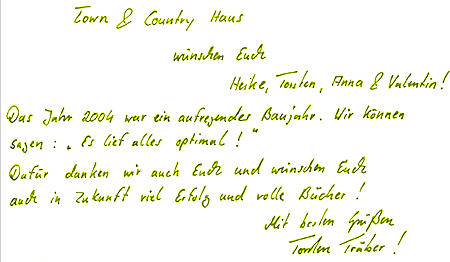 Town & Country Haus
wünschen Euch
Heike, Torsten, Anna & Valentin!
Das Jahr 2004 war ein aufregendes Baujahr. Wir können
sagen: „Es lief alles optimal!“
Dafür danken wir auch Euch und wünschen Euch
auch in Zukunft viel Erfolg und volle Bücher!
Mit besten Grüßen
Torsten Träber!